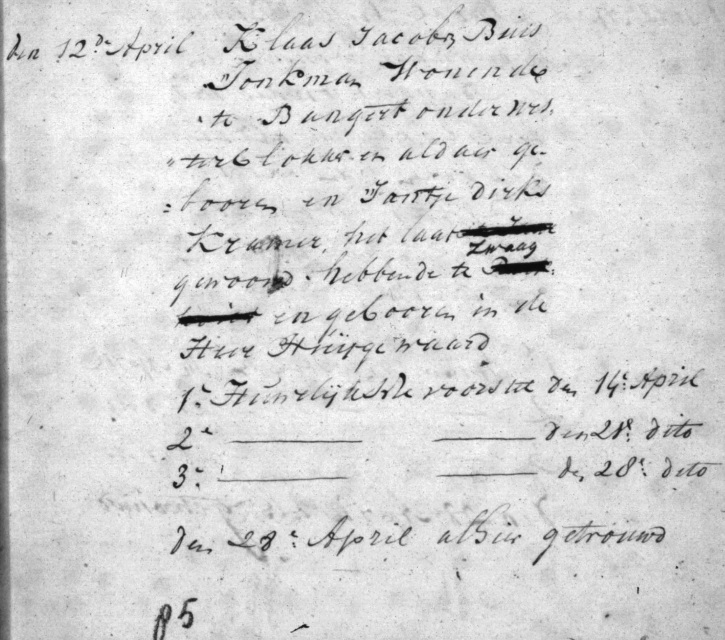 den 12d. April Klaas Jacobz Bais
Jonkman Wonende
te Bangert onder Wes
"terblokker en aldaer ge-
:booren en Jantje Dirks
Kramer, het laatst
Zwaag
gewoond hebbende te
en gebooren in de
Heer Huijgewaard
1e. Huwelijksche voorstel den 14e. April
2e den 21e. dito
3e. de 28e. dito
den 28e. April alhier getrouwd
p 5